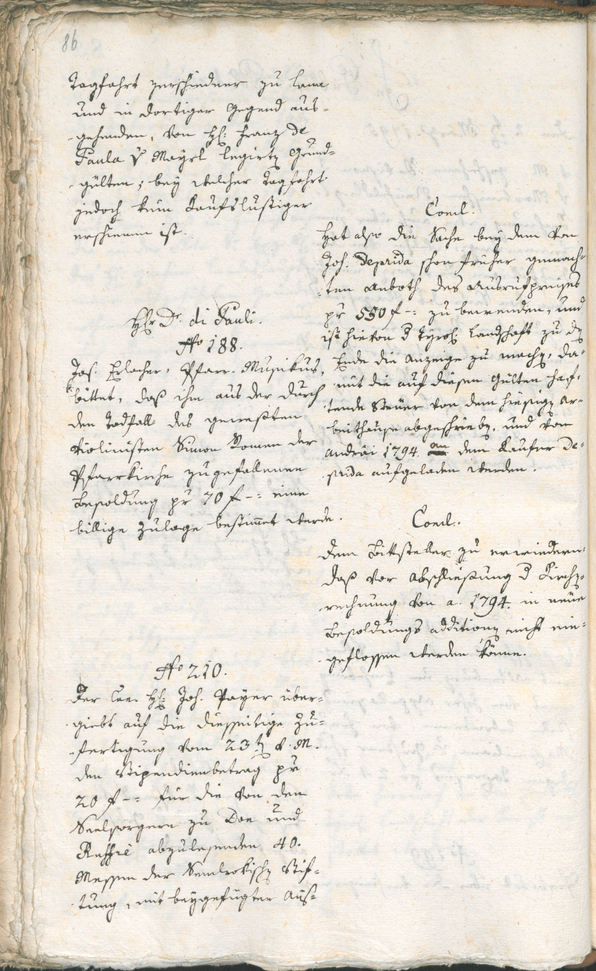 86
Tagfahrt verschiedener zu Lana
und in dortiger Gegend aus-
gehenden, von H: Franz de
Paula v Mayrl legirten Grund-
gülten; bey welcher Tagfahrt
jedoch kein Kaufslustiger
erschienen ist.
Concl.
Hat also die Sache bey dem von
Joh. Deprida schon früher gemach-
ten Anboth des Ausrufpreises
pr 550 f -: zu bewenden, und
ist hievon d Tyrol. Landschaft zu dem
Ende die Anzeige zu machen, da-
mit die auf diesen Gülten haf-
tende Steuer von dem hiesigen Ar-
beithause abgeschrieben, und vom
Andräi 1794 an dem Käufer De-
prida aufgeladen werden.
Hr Dr. di Pauli.
No 188.
Jos. Erlacher, Pfarr-Musikus,
bittet, daß ihm aus der durch
den Todfall des gewesten
Violinisten Simon Komen der
Pfarrkirche zugefallenen
Besoldung pr 70 f -: eine
billige Zulage bestimmt werde.
Concl.
Dem Bittsteller zu erwiedern
daß vor Abschließung d Kirchen-
rechnung von a. 1794. in neue
Besoldungs additionen nicht ein-
geflossen werden könne.
No 210.
Der Herr H: Joh. Payer über-
giebt auf die diesseitige Zu-
fertigung vom 23ten d. M.
den Stipendienbetrag pr
20 f -: für die von den
Seelsorgern zu Don und
Ruffré abzulesenden 40.
Messen der Stif-
tung, mit beygefügter Aus-